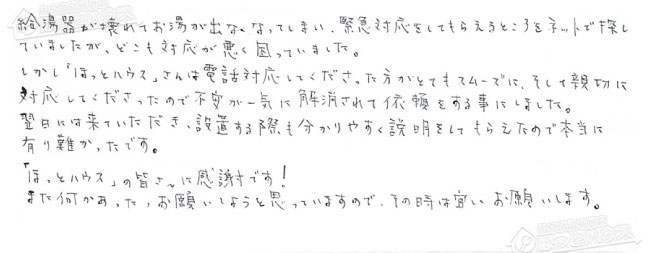 給湯器が壊れてお湯が出なくなってしまい、緊急対応をしてもらえるところをネットで探し
ていましたが、どこも対応が悪く困っていました。
しかし「ほっとハウス」さんは電話対応してくださった方がとてもスムーズに、そして親切に
対応してくださったので不安が一気に解消されて依頼をする事にしました。
翌日には来ていただき、設置する際も分かりやすく説明をしてもらえたので本当に
有り難かったです。
「ほっとハウス」の皆さんに感謝です!
また何かあったらお願いしようと思っていますので、その時は宜しくお願いします。
ほっとハウス